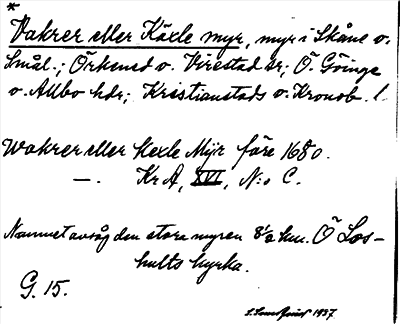 *
Vakrer eller Käxle myr, myr i Skåne o.
Smål.; Örkened o. Virestad sr; Ö. Göinge
o. Allbo hdr; Kristianstads o. Kronob. l.
Wakrer eller Kexle Myr före 1680.
—. Kr A, XVI, N:o C.
Namnet avsåg den stora myren 8½ km. Ö Los-
hults kyrka.
G. 15.
1937